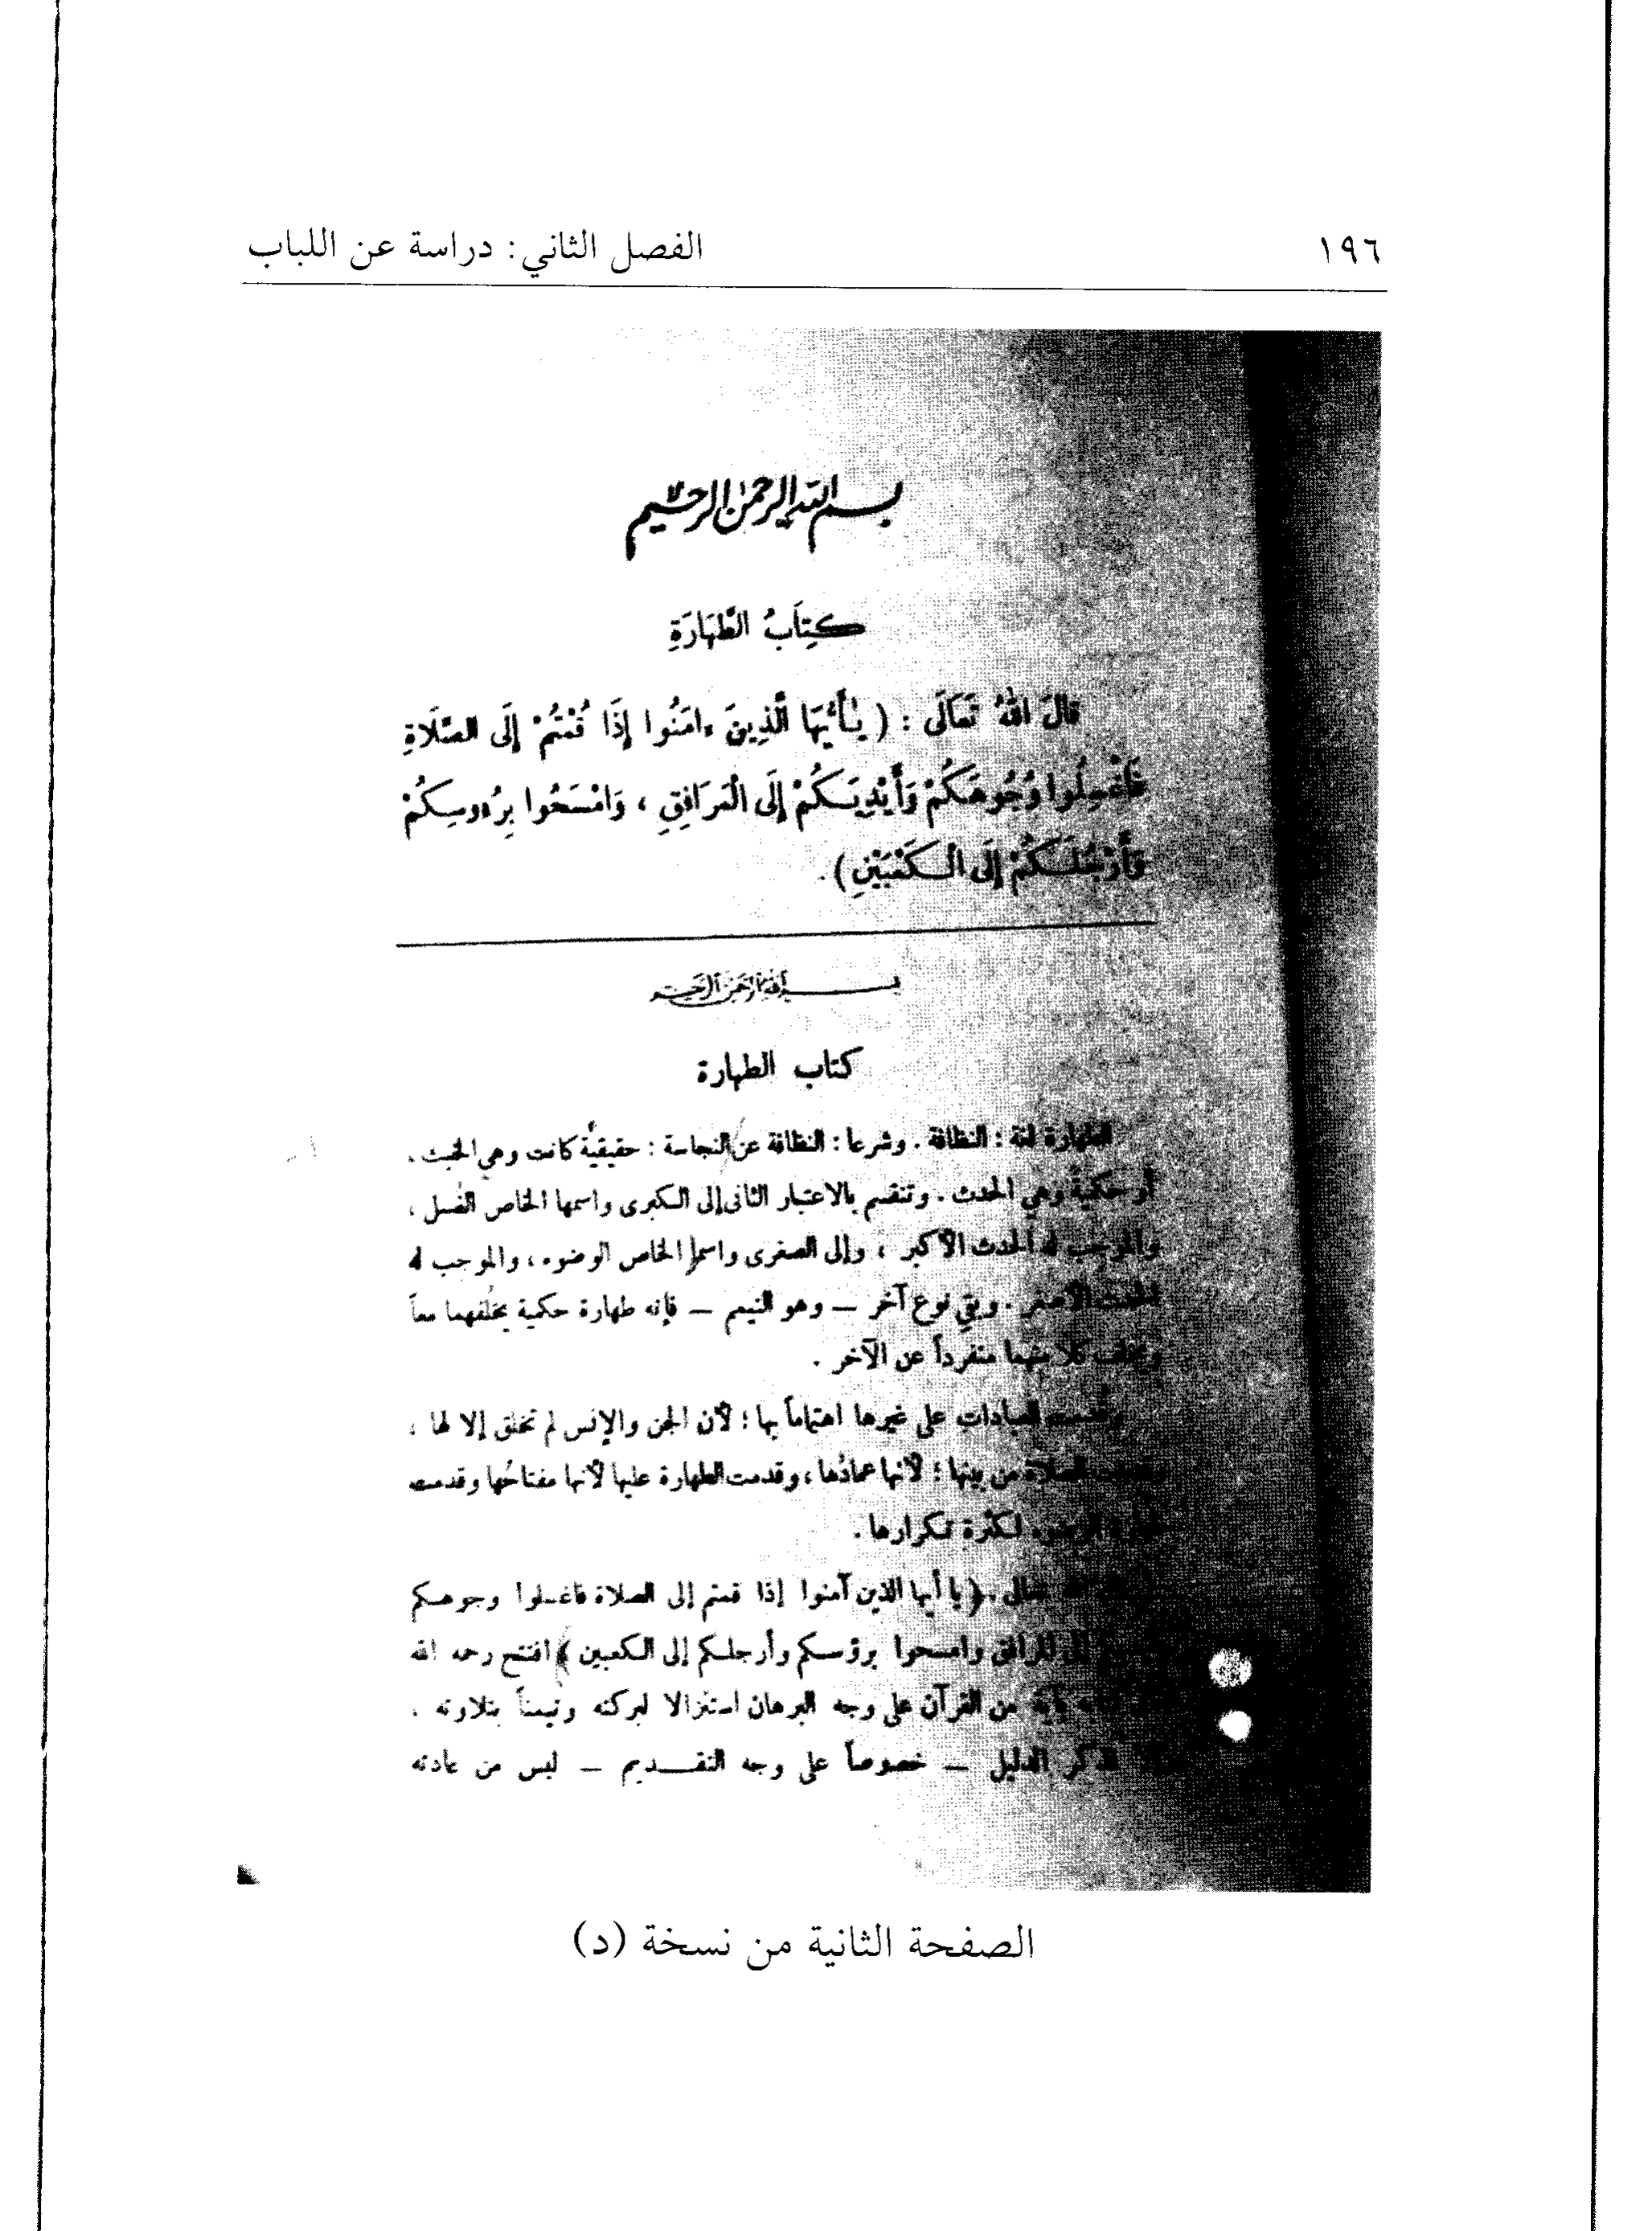 ١٩٦ الفصل الثاني: دراسة عن اللباب
بسم الله الرحمن الرحيم
كِتَابُ الطَّهَارَةِ
قَالَ اللهُ تَعَالَى : ( يَٰأَيُّهَا الَّذِينَ ءامَنُوا إِذَا قُمْتُمْ إِلَى الصَّلَاةِ
فَاغْسِلُوا وُجُوهَكُمْ وَأَيْدِيَكُمْ إِلَى الْمَرَافِقِ ، وَامْسَحُوا بِرُءوسِكُمْ
وَأَرْجُلَكُمْ إِلَى الْكَعْبَيْنِ ) .
بسم الله الرحمن الرحيم
كتاب الطهارة
الطهارة لغة : النظافة . وشرعا : النظافة عن النجاسة : حقيقيَّة كانت وهي الخبث ،
أو حكمية وهي الحدث . وتنقسم بالاعتبار الثانى إلى الكبرى واسمها الخاص الغسل ،
والموجب له الحدث الأكبر ، وإلى الصغرى واسمها الخاص الوضوء ، والموجب له
الحدث الأصغر . وبقي نوع آخر — وهو التيمم — فإنه طهارة حكمية يخلُفهما معاً
ويخلف كلا منهما منفرداً عن الآخر .
وقدمت العبادات على غيرها اهتماماً بها ؛ لأن الجن والإنس لم تخلق إلا لها ،
الصلاة من بينها ؛ لأنها عمادُها ، وقدمت الطهارة عليها لأنها مفتاحُها وقدمت
الوضوء لكثرة تكرارها .
تعالى ﴿ يا أيها الذين آمنوا إذا قمتم إلى الصلاة فاغسلوا وجوهكم
إلى المرافق وامسحوا برؤسكم وأرجلكم إلى الكعبين ﴾ افتتح رحمه الله
بآية من القرآن على وجه البرهان استنزالا لبركته وتيمناً بتلاوته .
فذكر الدليل — خصوصاً على وجه التقديم — ليس من عادته
الصفحة الثانية من نسخة (د)